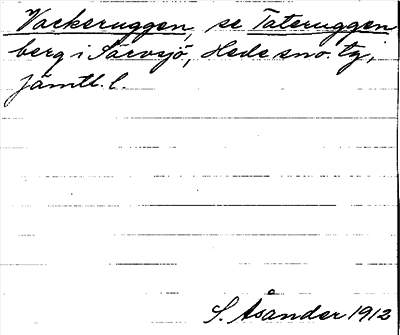 Vackeruggen, se Tateruggen
berg i Särvsjö, Hede sno. tg,
Jämtl. l.
S. Åsander 1912